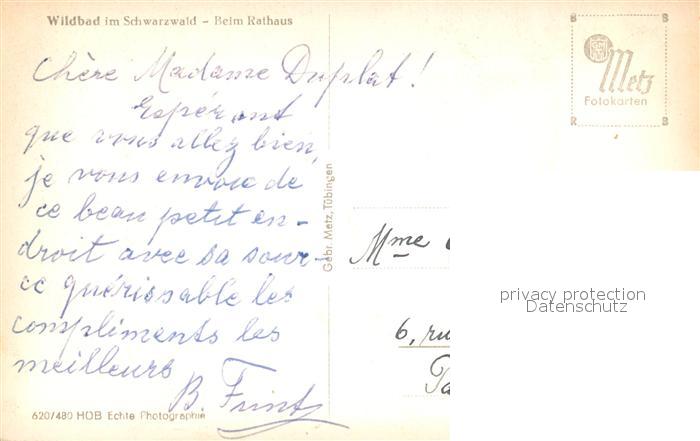 Wildbad im Schwarzwald - Beim Rathaus
Chère Madame Duplat!
Espérant
que vous allez bien,
je vous envoie de
ce beau petit en-
droit avec sa sour-
ce guérissable les
compliments les
meilleurs
B.
620/480 HOB Echte Photographie
Gebr. Metz, Tübingen
Metz
Fotokarten
Mme
6, ru
privacy protection
Datenschutz